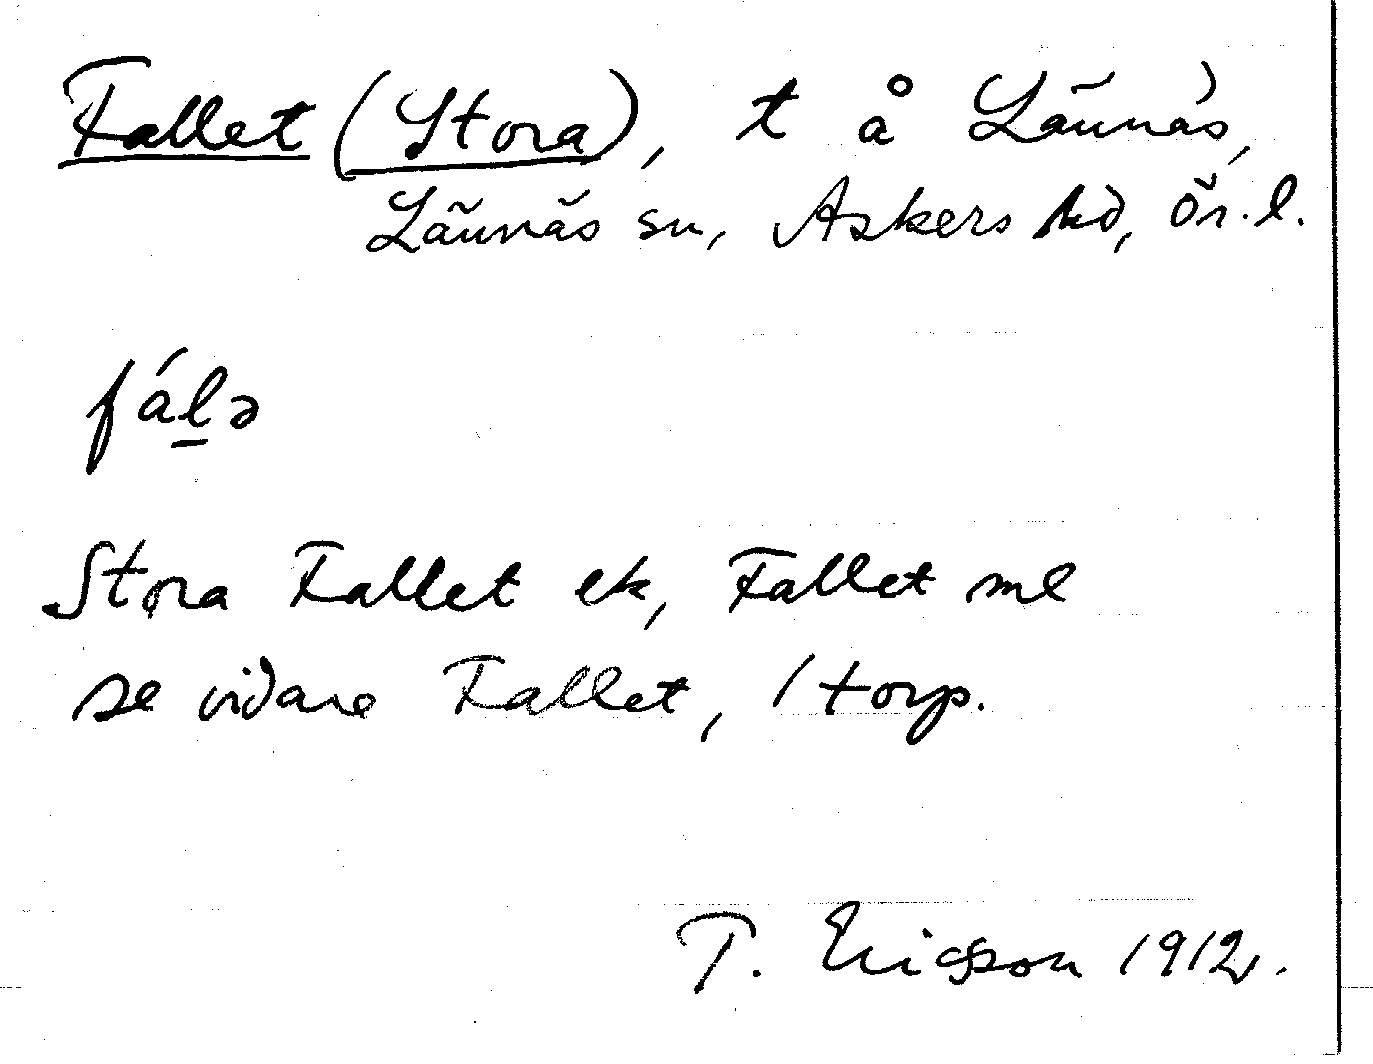 Fallet (Stora), t å Lännäs,
Lännäs sn, Askers hd, Ör.l.
fál̲ə
Stora Fallet ek, Fallet ml
se vidare Fallet, 1 torp.
T. Ericsson 1912.